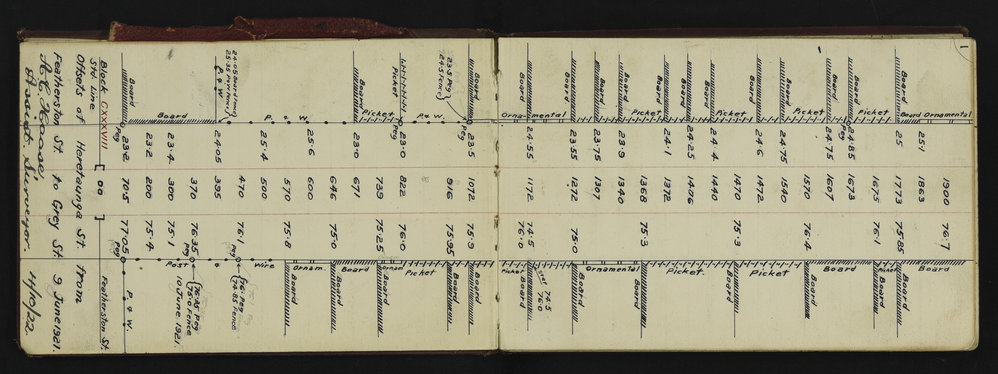 1
Ornamental 1900 76.7
25.1 1863 Board
Board 25 1773 75.85
Board 1675 76.1 Picket
Picket 24.85 1673 Board
Board Peg 24.75 1607 Board
Picket 1570 76.4
Board 24.75 1540 Board
Board 24.6 1472 Picket
Picket 1470 75.3 Board
Board 24.4 1440
Board 24.25 1406 Picket
Board 24.1 1372
Picket 1368 75.3 Board
Board 23.9 1340
Board 23.75 1307 Ornamental
Board 23.55 1272 75.0 Board
Ornamental over 74.5 76.0
Board 24.55 1172 74.5 76.0 Picket Board
Board Peg 23.5 1072 75.9 Board
23.5 Peg
24.5 Fence
P. & W. 916 75.95 Board
Picket 23.0 822 76.0 Picket
Picket 739 75.25 Ornam Board
Board 23.0 671 Board
646 75.0 Board
25.6 600 Ornam.
P. & W. 570 75.8 Board
25.4 500 Wire
470 76.1 Peg
76.1 Peg
74.85 Fence
24.05 Board Fence
P. & W. 24.05 395 &
370 76.35 Peg
76.35 Peg
75.0 Fence
10 June 1921.
Board 23.4 300 75.1 Post
23.2 200 75.4
Board Peg 23.2 70.5 77.05 Peg P. & W.
Block CXXXVIII [00] Featherston St.
Std. Line
Offsets of Heretaunga St. from
Featherston St. to Grey St. 9 June 1921.
Assist. Surveyor. 14/10/22.